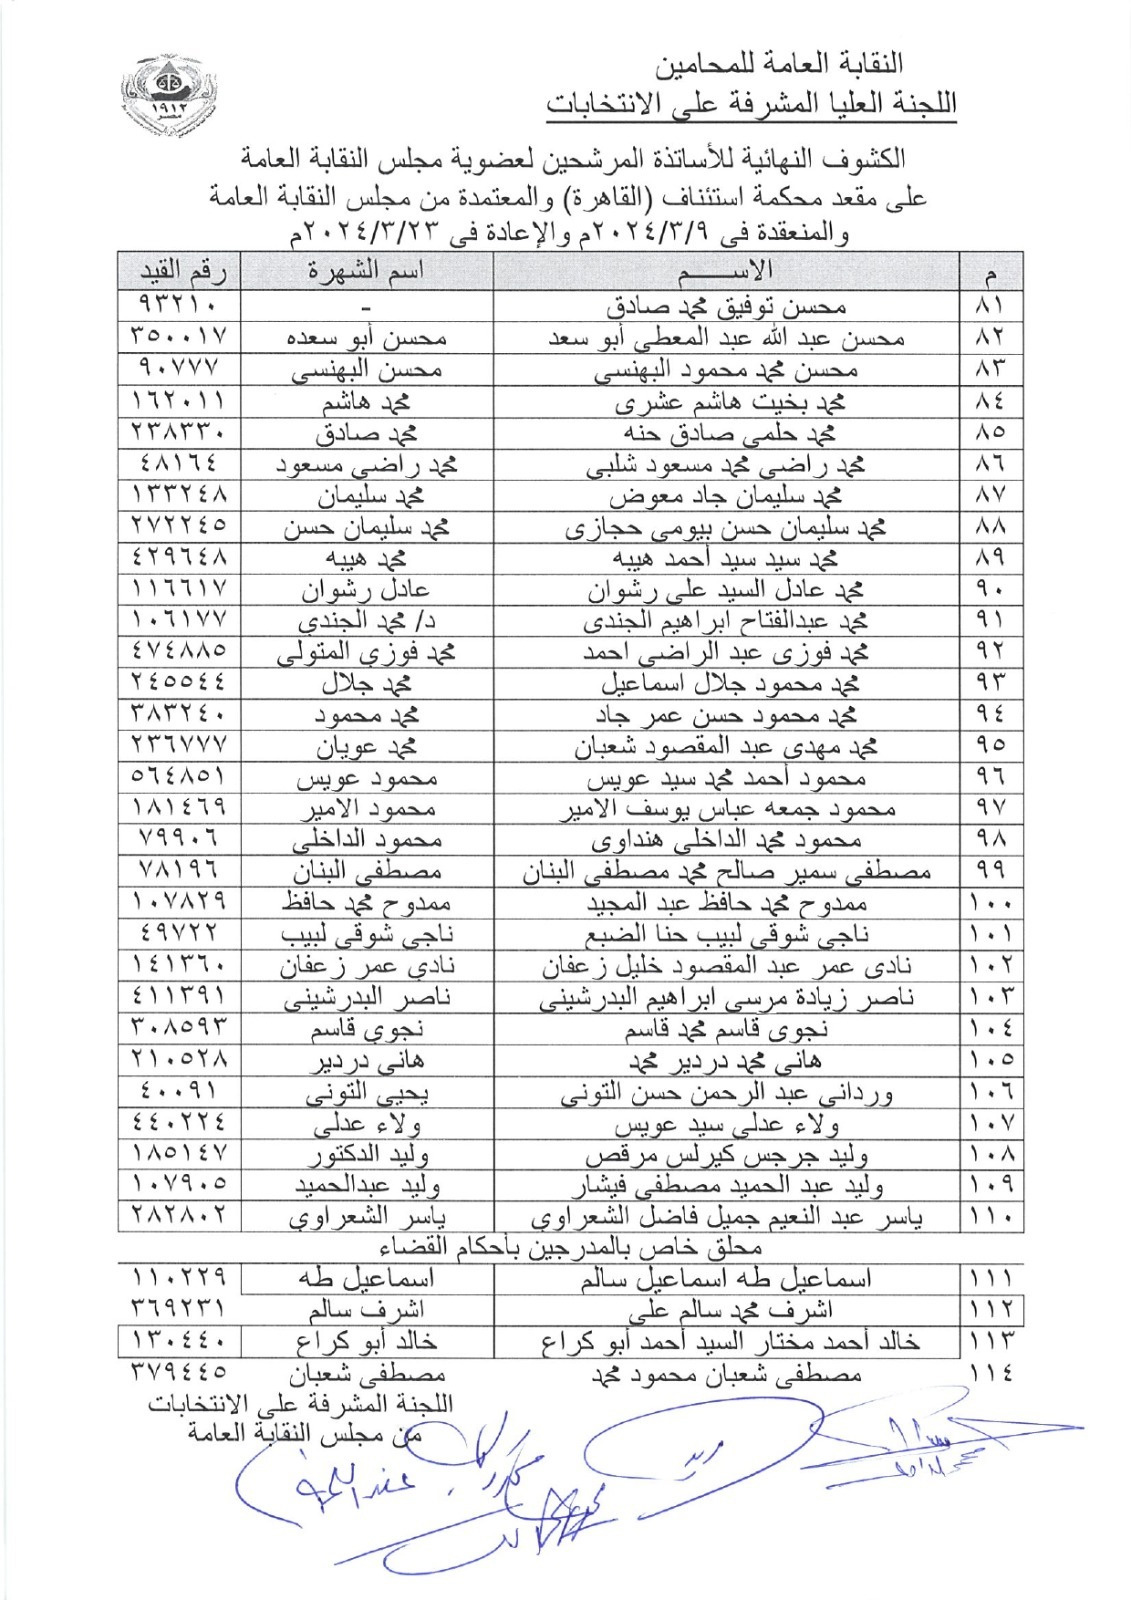 النقابة العامة للمحامين
اللجنة العليا المشرفة على الانتخابات
١٩١٢
مصر
الكشوف النهائية للأساتذة المرشحين لعضوية مجلس النقابة العامة
على مقعد محكمة استئناف (القاهرة) والمعتمدة من مجلس النقابة العامة
والمنعقدة فى ٢٠٢٤/٣/٩م والإعادة فى ٢٠٢٤/٣/٢٣م
م الاســـم اسم الشهرة رقم القيد
٨١ محسن توفيق محمد صادق - ٩٣٢١٠
٨٢ محسن عبد الله عبد المعطي أبو سعد محسن أبو سعده ٣٥٠٠١٧
٨٣ محسن محمد محمود البهنسى محسن البهنسي ٩٠٧٧٧
٨٤ محمد بخيت هاشم عشرى محمد هاشم ١٦٢٠١١
٨٥ محمد حلمى صادق حنه محمد صادق ٢٣٨٣٣٠
٨٦ محمد راضى محمد مسعود شلبي محمد راضي مسعود ٤٨١٦٤
٨٧ محمد سليمان جاد معوض محمد سليمان ١٣٣٢٤٨
٨٨ محمد سليمان حسن بيومى حجازى محمد سليمان حسن ٢٧٢٢٤٥
٨٩ محمد سيد سيد أحمد هيبه محمد هيبه ٤٢٩٦٤٨
٩٠ محمد عادل السيد على رشوان عادل رشوان ١١٦٦١٧
٩١ محمد عبدالفتاح ابراهيم الجندى د/ محمد الجندي ١٠٦١٧٧
٩٢ محمد فوزى عبد الراضى احمد محمد فوزي المتولى ٤٧٤٨٨٥
٩٣ محمد محمود جلال اسماعيل محمد جلال ٢٤٥٥٤٤
٩٤ محمد محمود حسن عمر جاد محمد محمود ٣٨٣٢٤٠
٩٥ محمد مهدى عبد المقصود شعبان محمد عويان ٢٣٦٧٧٧
٩٦ محمود أحمد محمد سيد عويس محمود عويس ٥٦٤٨٥١
٩٧ محمود جمعه عباس يوسف الامير محمود الامير ١٨١٤٦٩
٩٨ محمود محمد الداخلى هنداوى محمود الداخلي ٧٩٩٠٦
٩٩ مصطفى سمير صالح محمد مصطفى البنان مصطفى البنان ٧٨١٩٦
١٠٠ ممدوح محمد حافظ عبد المجيد ممدوح محمد حافظ ١٠٧٨٢٩
١٠١ ناجى شوقى لبيب حنا الضبع ناجى شوقى لبيب ٤٩٧٢٢
١٠٢ نادى عمر عبد المقصود خليل زعفان نادي عمر زعفان ١٤١٣٦٠
١٠٣ ناصر زيادة مرسى ابراهيم البدرشينى ناصر البدرشينى ٤١١٣٩١
١٠٤ نجوى قاسم محمد قاسم نجوي قاسم ٣٠٨٥٩٣
١٠٥ هانى محمد دردير محمد هانى دردير ٢١٠٥٢٨
١٠٦ ورداني عبد الرحمن حسن التونى يحيى التونى ٤٠٠٩١
١٠٧ ولاء عدلى سيد عويس ولاء عدلى ٤٤٠٢٢٤
١٠٨ وليد جرجس كيرلس مرقص وليد الدكتور ١٨٥١٤٧
١٠٩ وليد عبد الحميد مصطفى فيشار وليد عبدالحميد ١٠٧٩٠٥
١١٠ ياسر عبد النعيم جميل فاضل الشعراوي ياسر الشعراوي ٢٨٢٨٠٢
محلق خاص بالمدرجين بأحكام القضاء
١١١ اسماعيل طه اسماعيل سالم اسماعيل طه ١١٠٢٢٩
١١٢ اشرف محمد سالم على اشرف سالم ٣٦٩٢٣١
١١٣ خالد أحمد مختار السيد أحمد أبو كراع خالد أبو كراع ١٣٠٤٤٠
١١٤ مصطفى شعبان محمود محمد مصطفى شعبان ٣٧٩٤٤٥
اللجنة المشرفة على الانتخابات
من مجلس النقابة العامة